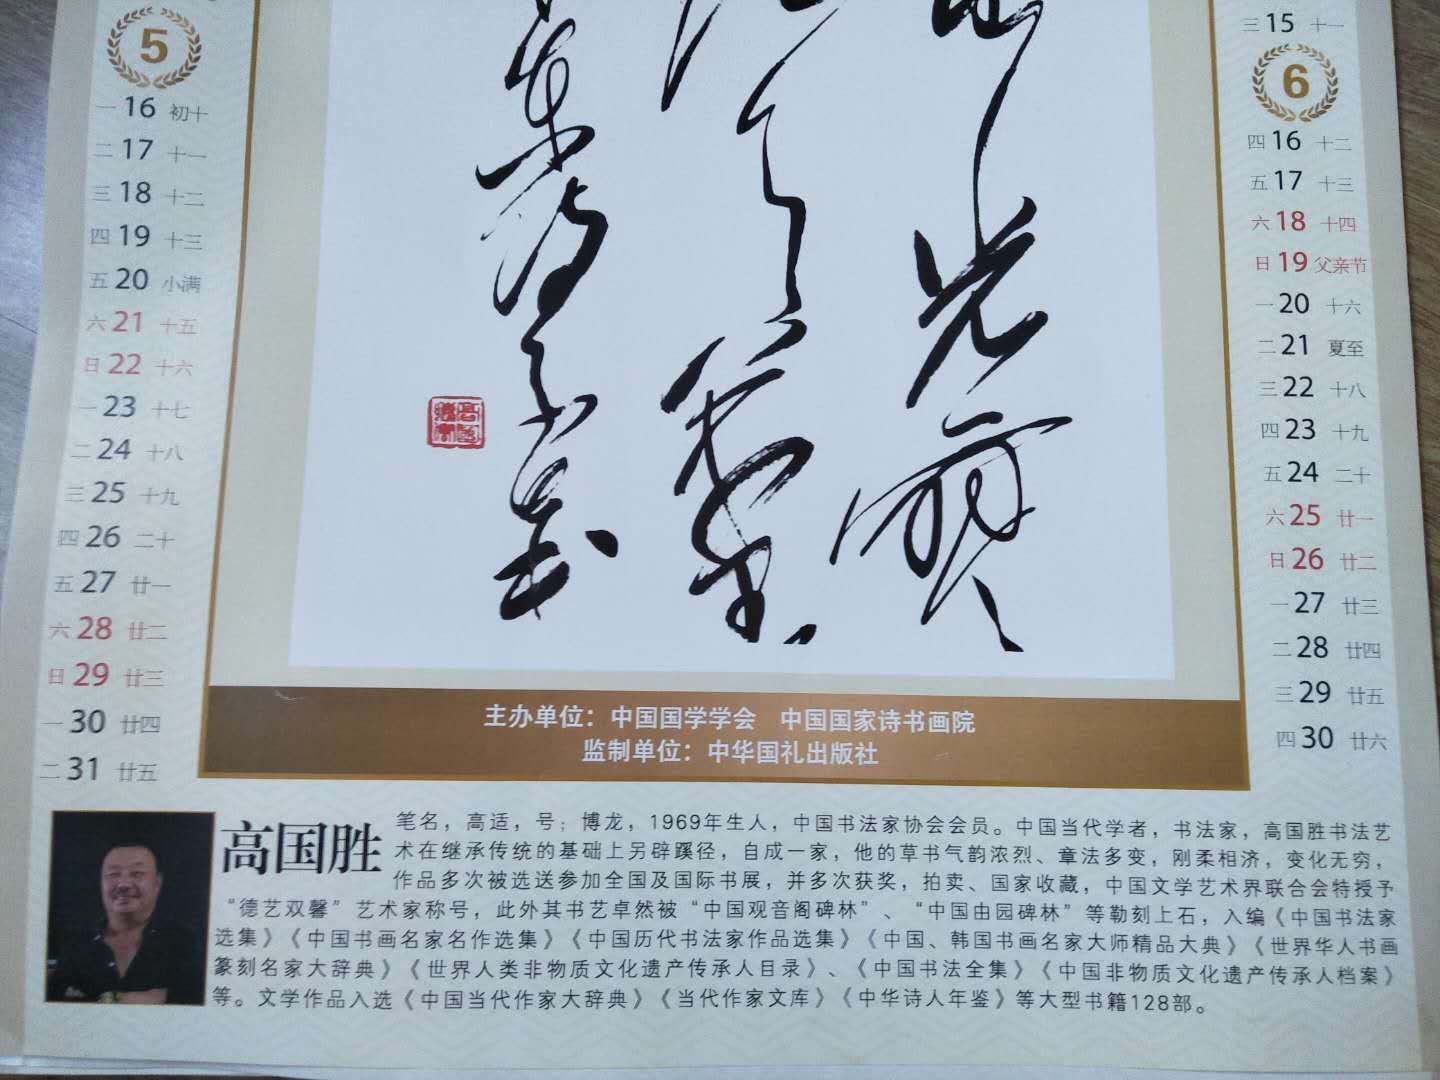 5
一 16 初十
二 17 十一
三 18 十二
四 19 十三
五 20 小满
六 21 十五
日 22 十六
一 23 十七
二 24 十八
三 25 十九
四 26 二十
五 27 廿一
六 28 廿二
日 29 廿三
一 30 廿四
二 31 廿五
三 15 十一
6
四 16 十二
五 17 十三
六 18 十四
日 19 父亲节
一 20 十六
二 21 夏至
三 22 十八
四 23 十九
五 24 二十
六 25 廿一
日 26 廿二
一 27 廿三
二 28 廿四
三 29 廿五
四 30 廿六
主办单位：中国国学学会 中国国家诗书画院
监制单位：中华国礼出版社
高国胜
笔名，高适，号；博龙，1969年生人，中国书法家协会会员。中国当代学者，书法家，高国胜书法艺
术在继承传统的基础上另辟蹊径，自成一家，他的草书气韵浓烈、章法多变，刚柔相济，变化无穷，
作品多次被选送参加全国及国际书展，并多次获奖，拍卖、国家收藏，中国文学艺术界联合会特授予
“德艺双馨”艺术家称号，此外其书艺卓然被“中国观音阁碑林”、“中国由园碑林”等勒刻上石，入编《中国书法家
选集》《中国书画名家名作选集》《中国历代书法家作品选集》《中国、韩国书画名家大师精品大典》《世界华人书画
篆刻名家大辞典》《世界人类非物质文化遗产传承人目录》、《中国书法全集》《中国非物质文化遗产传承人档案》
等。文学作品入选《中国当代作家大辞典》《当代作家文库》《中华诗人年鉴》等大型书籍128部。